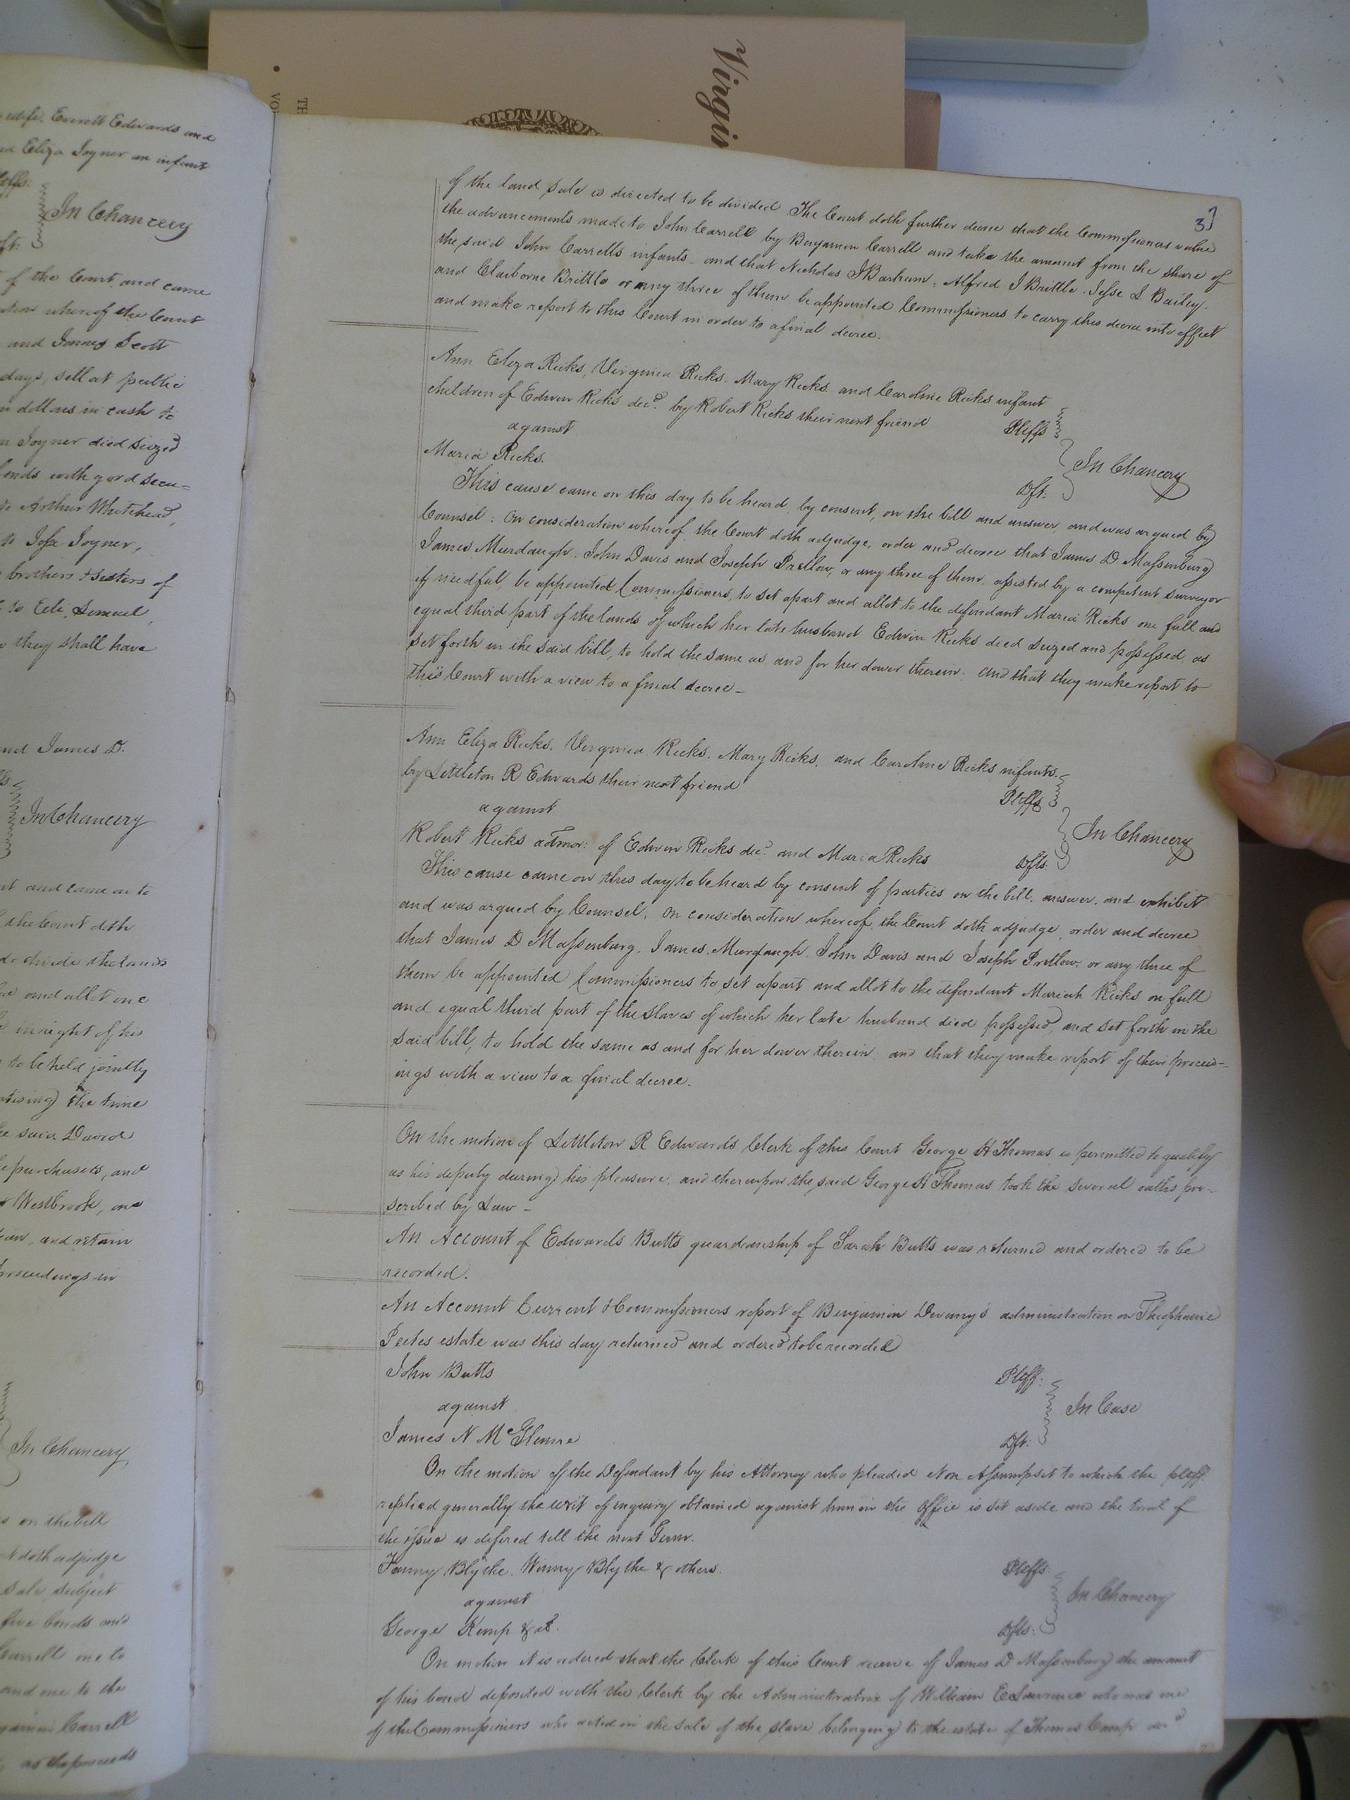 Virgin
TH
VO
wife, Everett Edwards and
and Eliza Joyner an infant
Pleffs.
In Chancery
Dft.
of the Court and came
whereof the Court
and James Scott
days, sell at public
dollars in cash to
Joyner died seized
bonds with good secu-
to Arthur Whitehead,
to Joyner,
brothers & sisters of
to Eli, Lemuel,
they shall have
and James D.
In Chancery
and came on to
the Court doth
divide the lands
and allot one
in right of his
to be held jointly
the time
the said David
purchasers, and
Westbrook, one
and retain
proceedings in
In Chancery,
on the bill
doth adjudge
sale, subject
five bonds and
Carrell one to
and one to the
Carrell
as the proceeds
3
of the land sale is directed to be divided. The Court doth further decree that the Commissioners value
the advancements made to John Carrell by Benjamin Carrell and take the amount from the share of
the said John Carrells infants - and that Nicholas J Barham, Alfred J Brittle, Jesse S Bailey.
and Claiborne Brittle or any three of them be appointed Commissioners to carry this decree into effect
and make report to this Court in order to a final decree.
Ann Eliza Ricks, Virginia Ricks, Mary Ricks and Caroline Ricks infant
children of Edwin Ricks decd. by Robert Ricks their next friend Pleffs
against
In Chancery
Maria Ricks. Dft.
This cause came on this day to be heard, by consent, on the bill and answer, and was argued by
Counsel: On consideration whereof, the Court doth adjudge, order and decree that James D Massenburg
James Murdaugh, John Davis and Joseph Pretlow, or any three of them, assisted by a competent surveyor
if needful, be appointed Commissioners, to set apart and allot to the defendant Maria Ricks one full and
equal third part of the lands of which her late husband Edwin Ricks died seized and possessed, as
set forth in the said bill, to hold the same as and for her dower therein. and that they make report to
this Court with a view to a final decree -
Ann Eliza Ricks, Virginia Ricks, Mary Ricks, and Caroline Ricks infants
by Littleton R Edwards their next friend Pleffs
against
In Chancery
Robert Ricks admor: of Edwin Ricks decd. and Maria Ricks Dfts.
This cause came on this day to be heard by consent of parties on the bill, answer, and exhibit
and was argued by Counsel, on consideration whereof, the Court doth adjudge, order and decree
that James D Massenburg, James Murdaugh, John Davis and Joseph Pretlow, or any three of
them be appointed Commissioners to set apart and allot to the defendant Mariah Ricks on full
and equal third part of the slaves of which her late husband died possessed, and set forth in the
said bill, to hold the same as and for her dower therein, and that they make report of their proceed-
ings with a view to a final decree.
On the motion of Littleton R Edwards Clerk of this Court George H Thomas is permitted to qualify
as his deputy during his pleasure, and thereupon the said George H Thomas took the several oaths pre-
scribed by Law -
An Account of Edwards Butts guardianship of Sarah Butts was returned and ordered to be
recorded.
An Account Current & Commissioners report of Benjamin Devany's administration on
Peetes estate was this day returned and ordered to be recorded
John Butts Pleff.
against
In Case
James N McGlemre Dft.
On the motion of the Defendant by his Attorney who pleaded Non Assumpsit to which the pleff
replied generally the writ of inquiry obtained against him in the Office is set aside and the trial of
the issue is defered till the next Term.
Fanny Blythe, Winny Blythe & others. Pleffs
against
In Chancery
George Kemp & al. Dfts.
On motion it is ordered that the Clerk of this Court receive of James D Massenburg the amount
of his bond deposited with the Clerk by the Administratrix of William E Lawrence who was one
of the Commissioners who acted in the sale of the slave belonging to the estate of Thomas Camp decd